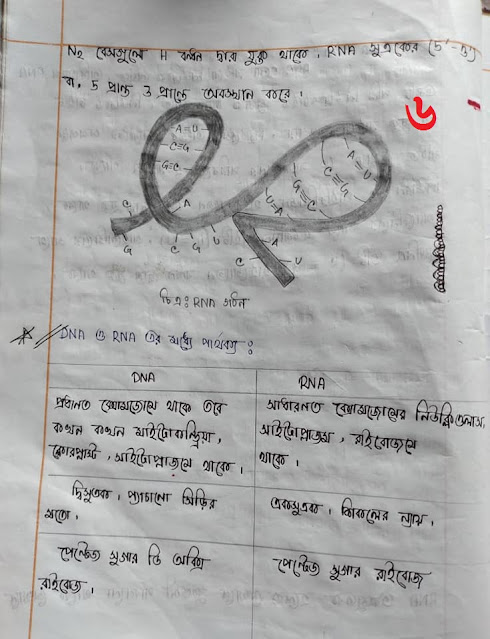 N₂ বেসগুলো H বন্ধন দ্বারা যুক্ত থাকে, RNA সূত্রকের (5´-3´)
বা, 5 প্রান্ত 3 প্রান্তে অবস্থান করে।
৬
A=U
C≡G
G≡C
C
A
G
C
G
U
A
U
C≡G
G≡C
U=A
A
C
U
চিত্র: RNA গঠন
DNA ও RNA এর মধ্যে পার্থক্য:
DNA
RNA
প্রধানত ক্রোমোজোমে থাকে তবে
কখন কখন মাইটোকন্ড্রিয়া,
ক্লোরপ্লাস্ট, সাইটোপ্লাজমে থাকে।
সাধারনত ক্রোমোজোমের নিউক্লিওলাস,
সাইটোপ্লাজম, রাইবোজোমে
থাকে।
দ্বিসূত্রক। প্যাচানো সিঁড়ির
মতো।
একসূত্রক। শিকলের ন্যায়।
পেন্টোজ সুগার ডি অক্সি
রাইবোজ।
পেন্টোজ সুগার রাইবোজ